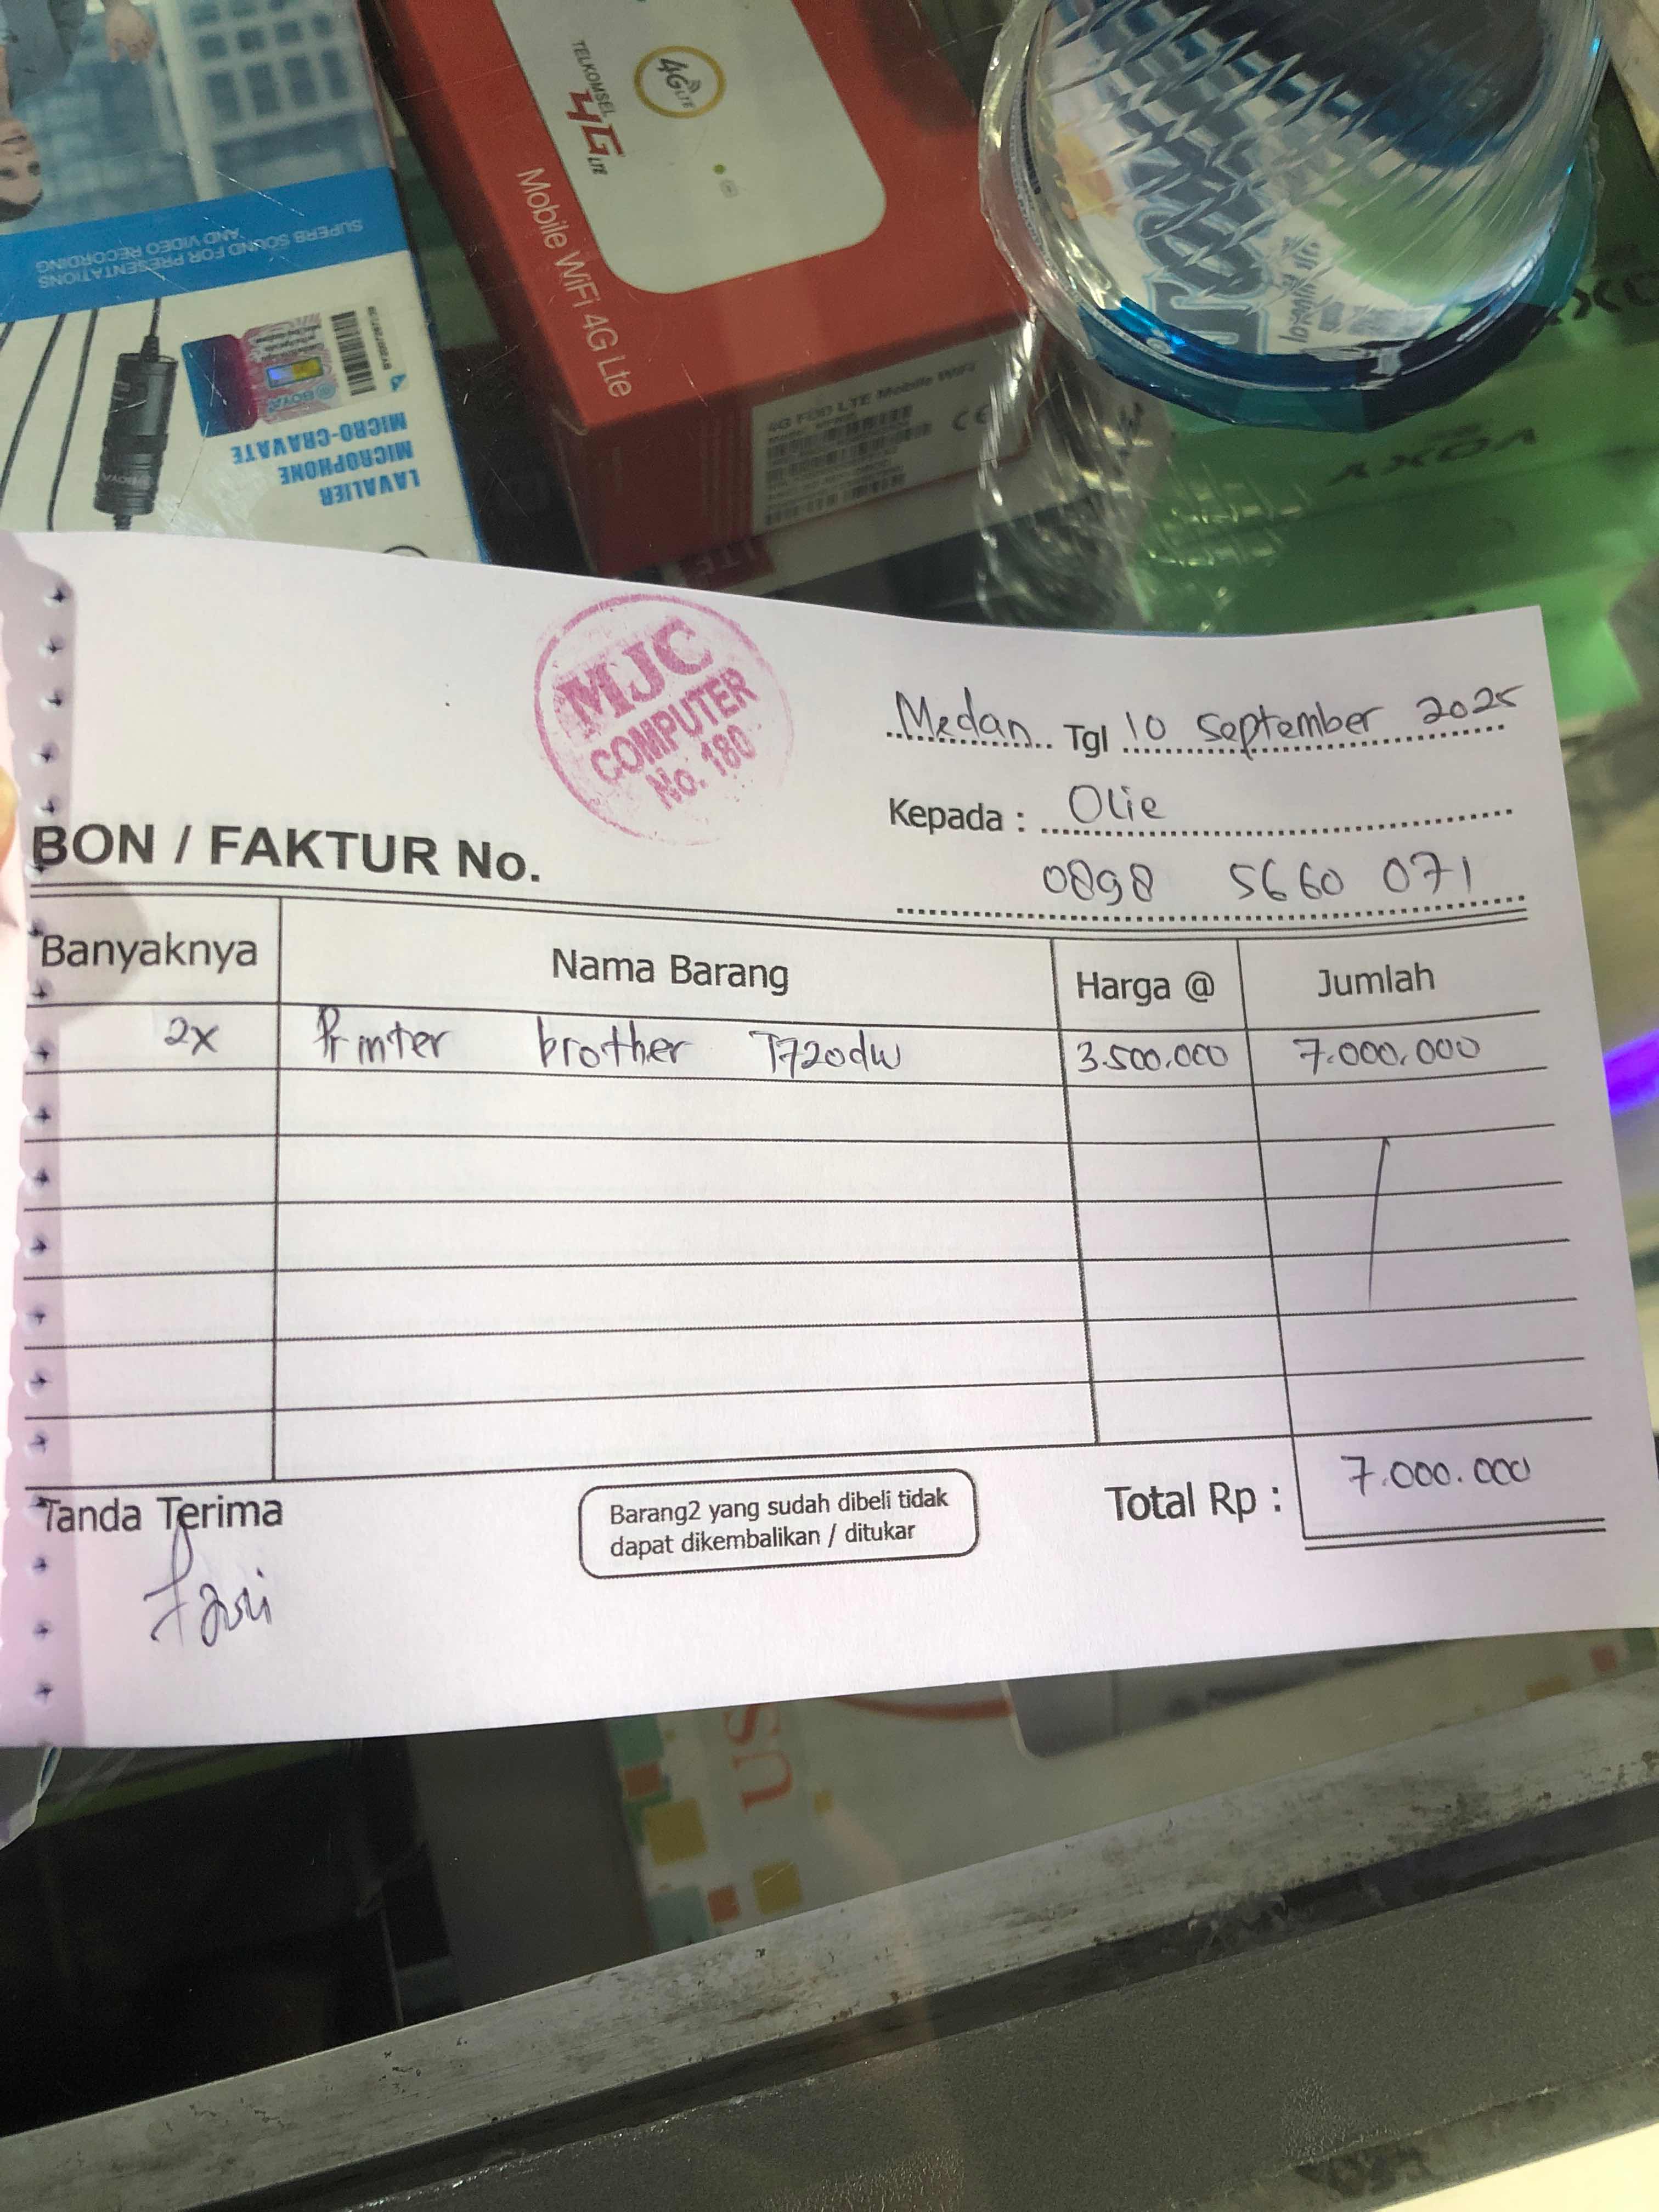 TELKOMSEL
4G LTE
4G LTE
Mobile WiFi 4G Lte
4G FDD LTE Mobile WiFi
SUPERB SOUND FOR PRESENTATIONS
AND VIDEO RECORDING
BOYA
LAVALIER
MICROPHONE
MICRO-CRAVATE
VOXY
MJC
COMPUTER
No. 180
Medan Tgl 10 September 2025
Kepada : Olie
0898 5660 071
BON / FAKTUR No.
Banyaknya Nama Barang Harga @ Jumlah
2x Printer brother T720dw 3.500.000 7.000.000
Tanda Terima
Barang2 yang sudah dibeli tidak
dapat dikembalikan / ditukar
Total Rp : 7.000.000